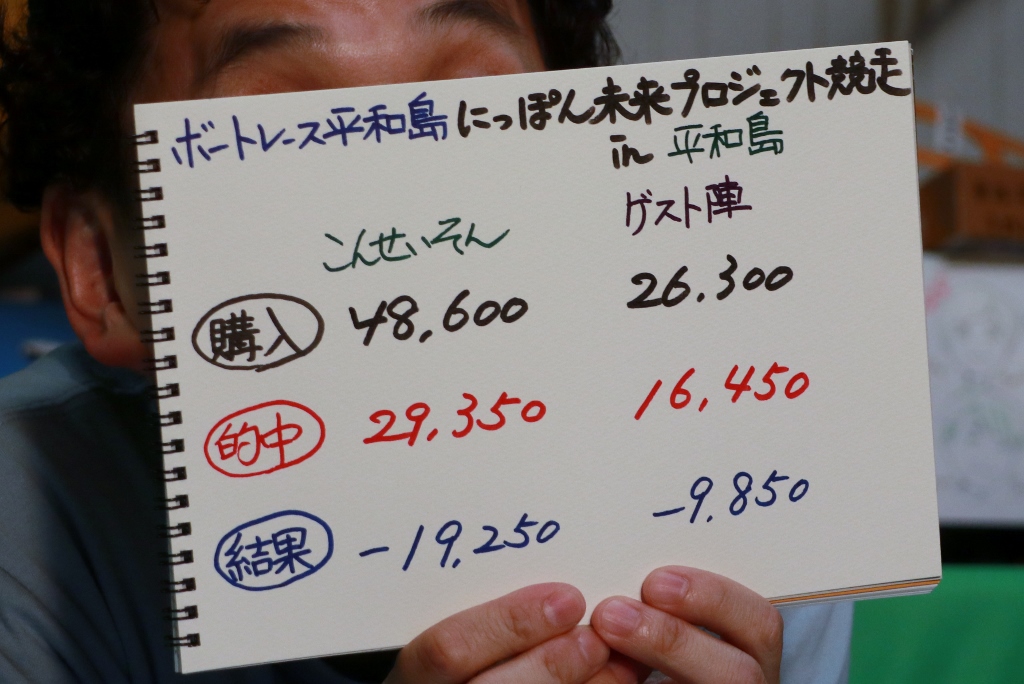 ボートレース平和島にっぽん未来プロジェクト競走
in 平和島
こんせいそん ゲスト陣
購入 48,600 26.300
的中 29,350 16,450
結果 -19,250 -9.850